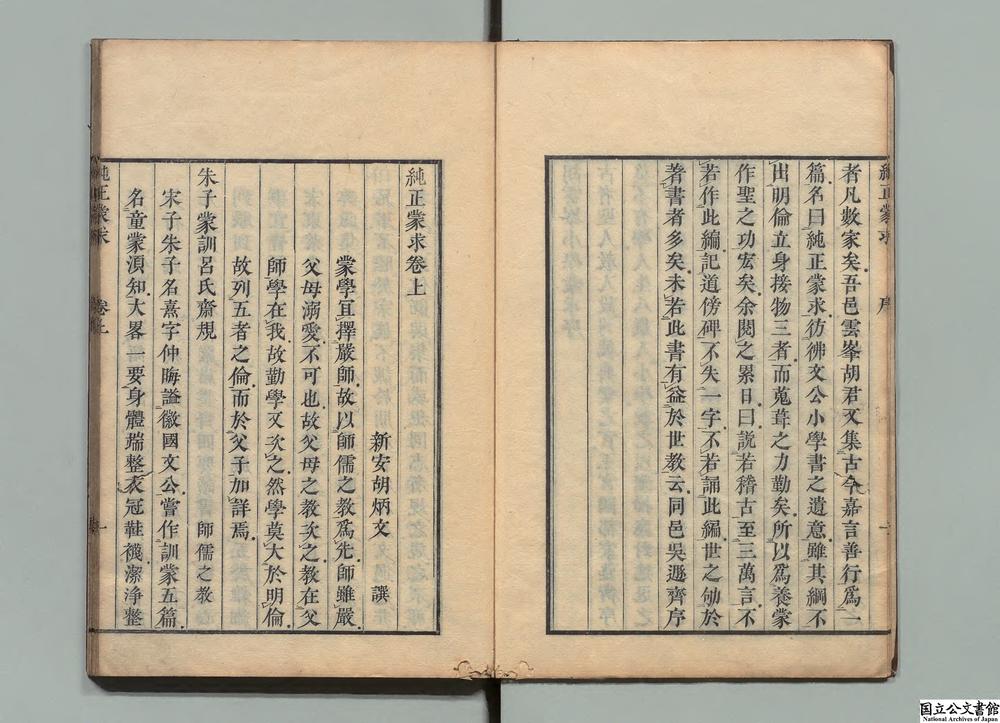 純正蒙求 序 一
者凡數家矣吾邑雲峯胡君又集古今嘉言善行爲一
篇名曰純正蒙求彷彿文公小學書之遺意雖其綱不
出明倫立身接物三者而蒐葺之力勤矣所以爲養蒙
作聖之功宏矣余閱之累日曰説若稽古至三萬言不
若作此編記道傍碑不失一字不若誦此編世之劬於
著書者多矣未若此書有益於世教云同邑吳遯齊序
純正蒙求卷上
新安胡炳文 譔
蒙學且擇嚴師故以師儒之教爲先師雖嚴
父母溺愛不可也故父母之教次之教在父
師學在我故勤學又次之然學莫大於明倫
故列五者之倫而於父子加詳焉
朱子蒙訓呂氏齋規 師儒之教
宋子朱子名熹字仲晦謚徽國文公嘗作訓蒙五篇
名童蒙湏知大畧一要身體端整衣冠鞋襪潔淨整
純正蒙求 卷上 一
国立公文書館
National Archives of Japan